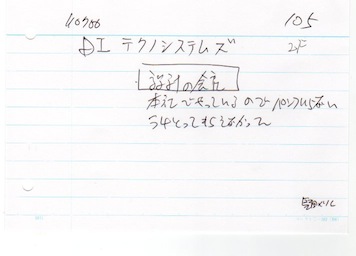 110700 105
DI テクノシステムズ 2F
設計の会社
本社でやっているのでパンフいらない
うけとってもらえなかった